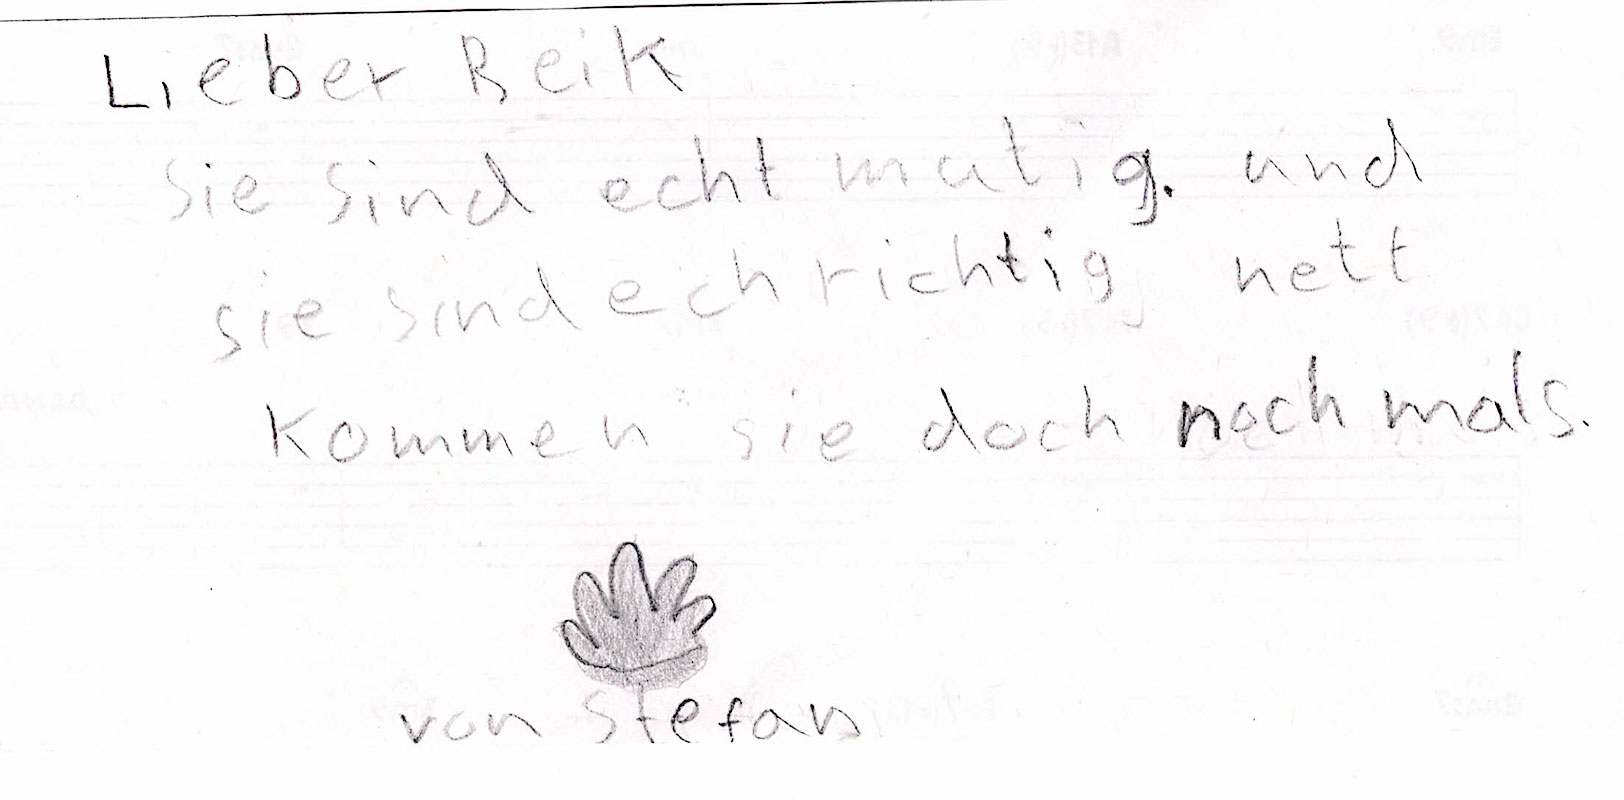 Lieber Reik
sie sind echt mutig. und
sie sind ech richtig nett
kommen sie doch noch mals.
von Stefan